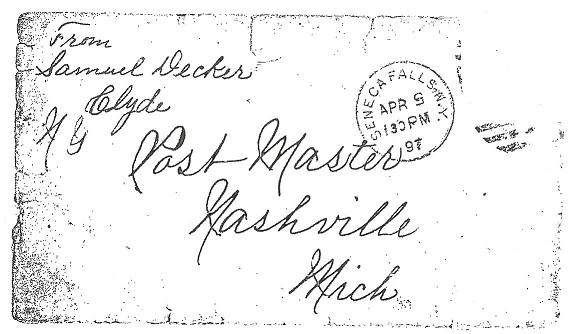 From
Samuel Decker
Clyde
N Y
SENECA FALLS N.Y.
APR 5
130 PM
'97
Post Master
Nashville
Mich